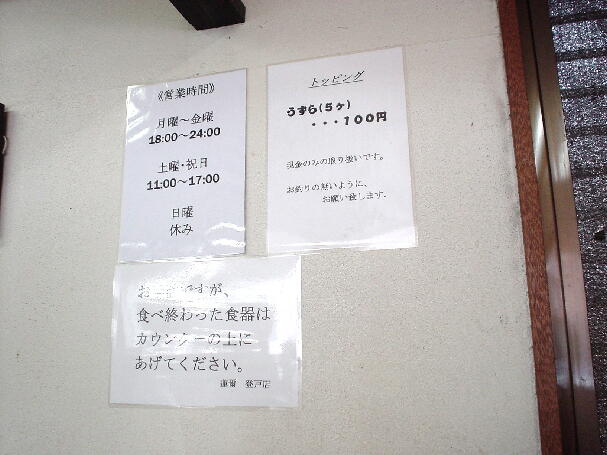 《営業時間》
月曜～金曜
18:00～24:00
土曜・祝日
11:00～17:00
日曜
休み
トッピング
うずら(5ヶ)
・・・100円
現金のみの取り扱いです。
お釣りの無いように、
お願い致します。
お ですが、
食べ終わった食器は
カウンターの上に
あげてください。
蓮爾 登戸店